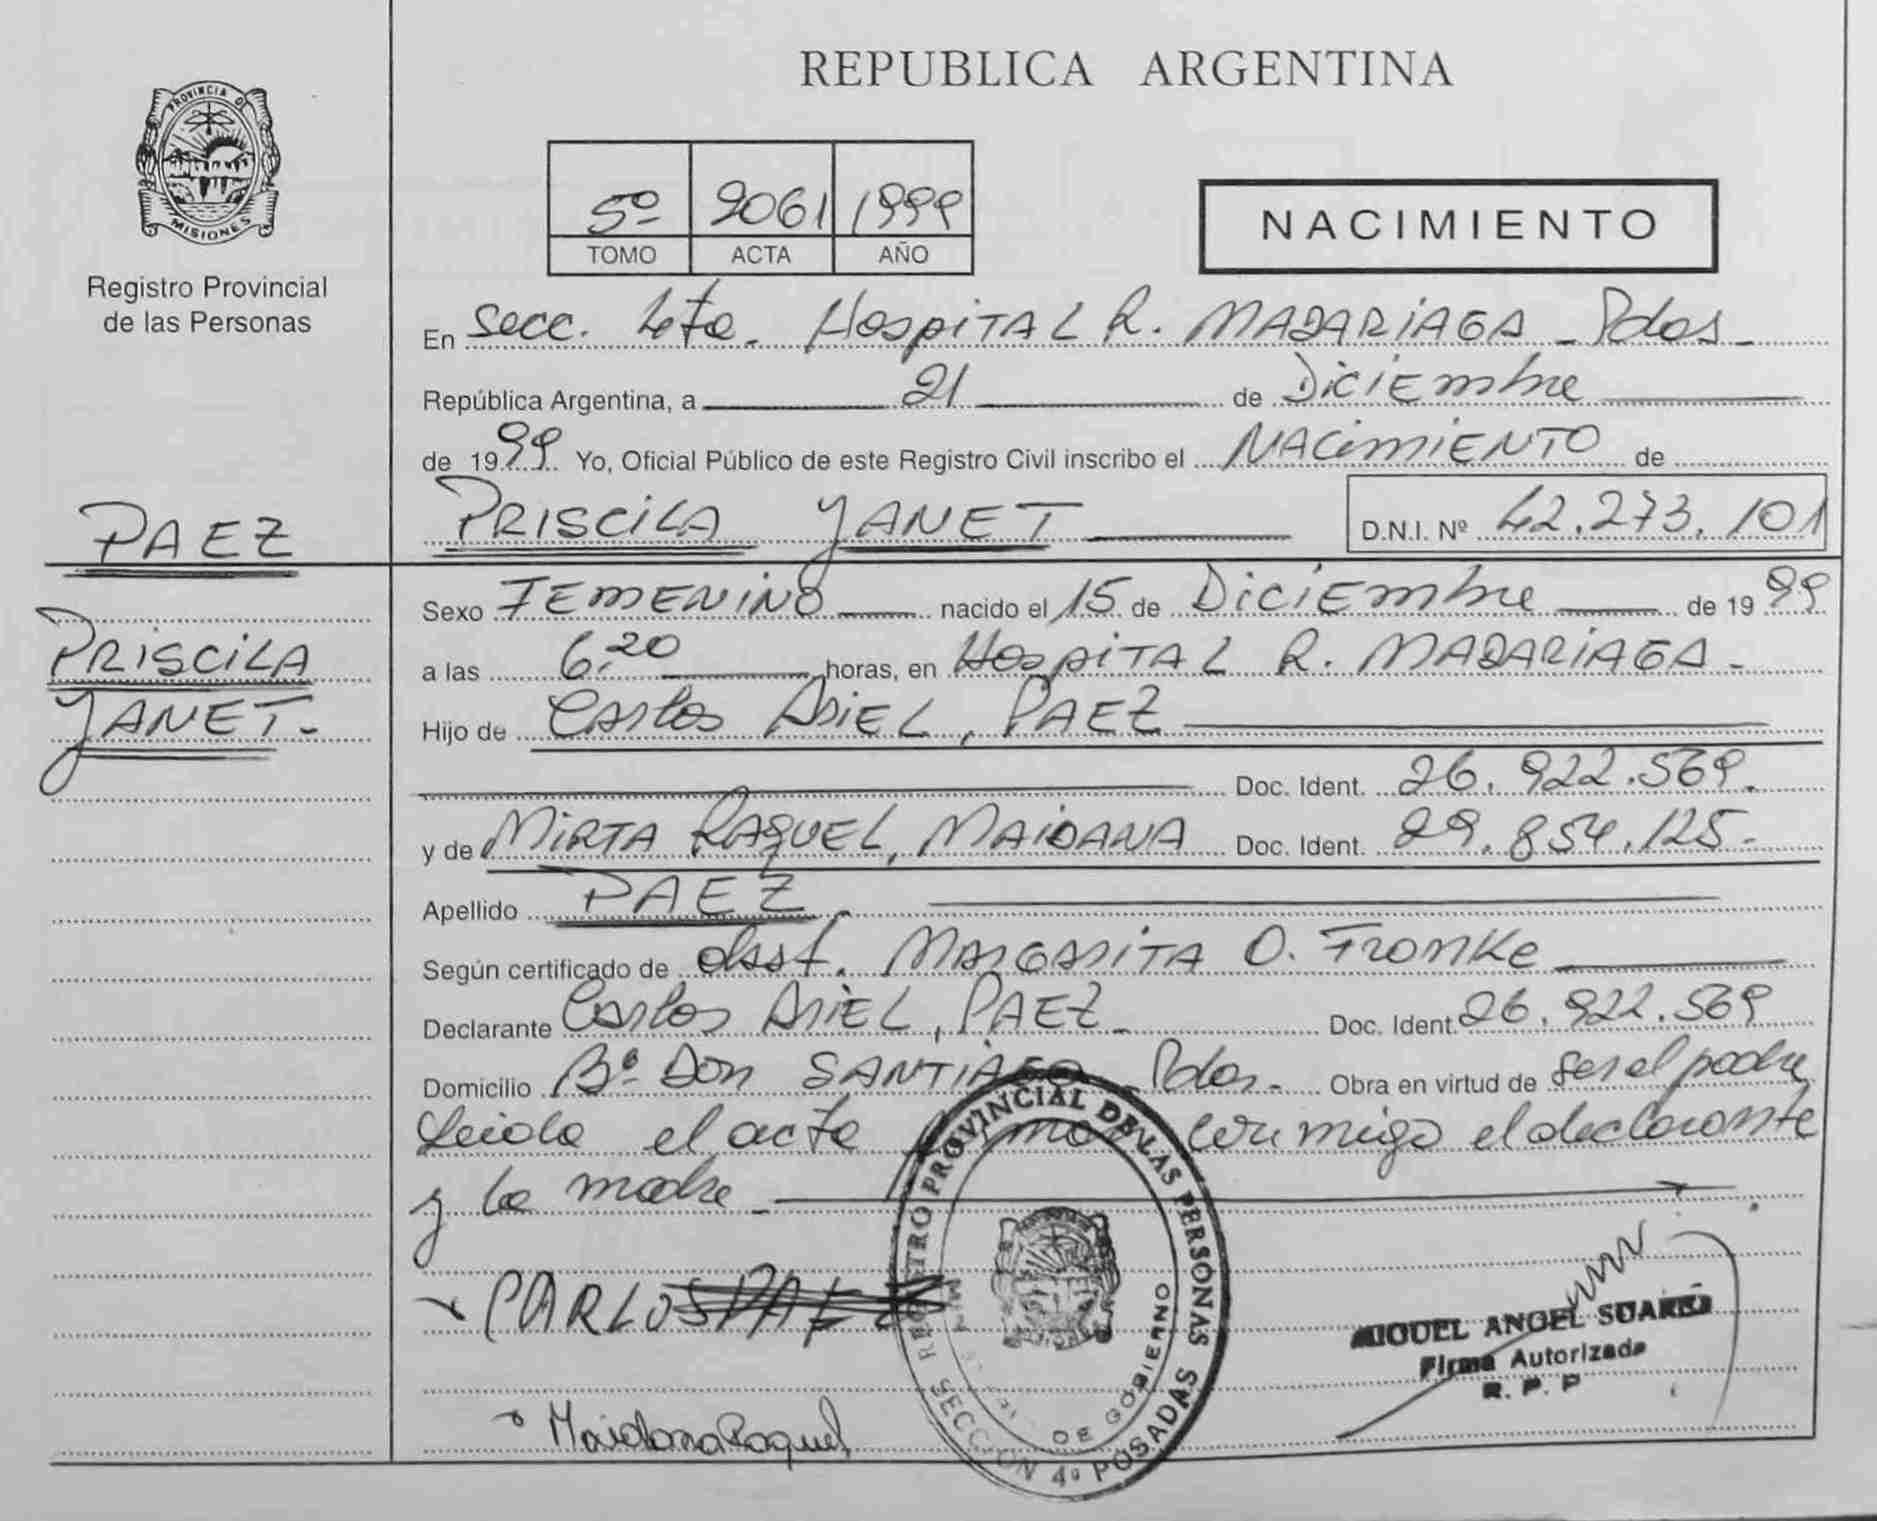 REPUBLICA ARGENTINA
PROVINCIA DE
MISIONES
Registro Provincial
de las Personas
5º 2061 1999
TOMO ACTA AÑO
NACIMIENTO
En Secc. 4ta. Hospital R. MADARIAGA - Pdas -
República Argentina, a 21 de Diciembre
de 1999 Yo, Oficial Público de este Registro Civil inscribo el NACIMIENTO de
PAEZ
PRISCILA YANET D.N.I. Nº 42.273.101
Sexo FEMENINO nacido el 15 de Diciembre de 1999
PRISCILA
YANET -
a las 6.20 horas, en Hospital R. MADARIAGA -
Hijo de Carlos ARIEL, PAEZ
Doc. Ident. 26.922.569.
y de MIRTA RAQUEL, MAIDANA Doc. Ident. 29.854.125.-
Apellido PAEZ.
Según certificado de obst. MARGARITA O. Fromke
Declarante Carlos ARIEL, PAEZ - Doc. Ident. 26.922.569
Domicilio Bº Don SANTIAGO - Pdas - Obra en virtud de ser el padre
Leida el acta conmigo el declarante
y la madre -
CARLOS PAEZ
REGISTRO PROVINCIAL DE LAS PERSONAS
DE GOBIERNO
SECCION 4º POSADAS
MIGUEL ANGEL SUAREZ
Firma Autorizada
R. P. P
Maidana Raquel